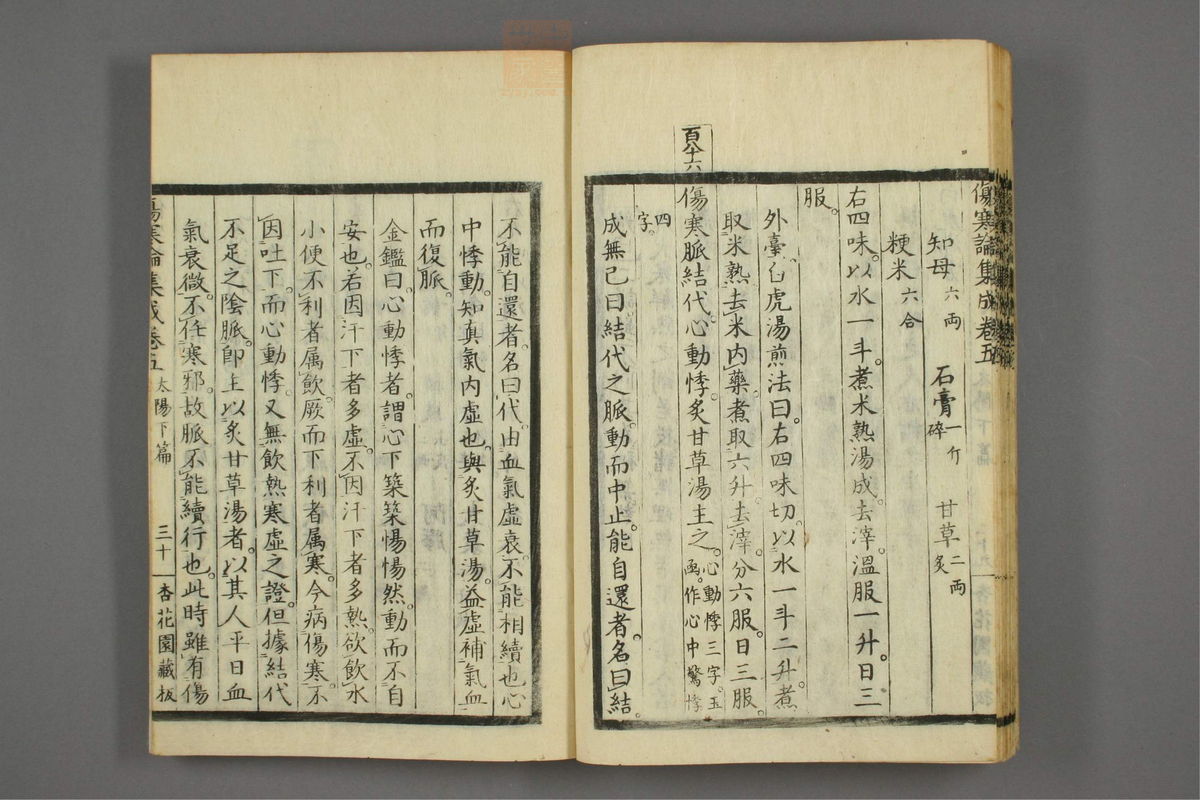 傷寒論集成卷五
知母六兩　石膏一斤碎　甘草二兩炙
粳米六合
右四味。以水一斗。煮米熟湯成。去滓。溫服一升。日三
服。
外臺。白虎湯煎法曰。右四味切。以水一斗二升。煮
取米熟。去米内藥。煮取六升。去滓。分六服。日三服。
百八十六
傷寒脈結代。心動悸。炙甘草湯主之。心動悸三字。玉
函。作心中驚悸
四
字。
成無已曰。結代之脈。動而中止。能自還者。名曰結。
不能自還者。名曰代。由血氣虛衰。不能相續也。心
中悸動。知真氣内虛也。與炙甘草湯。益虛補氣血
而復脈。
金鑑曰。心動悸者。謂心下築築惕惕然。動而不自
安也。若因汗下者多虛。不因汗下者多熱。欲飲水
小便不利者屬飲。厥而下利者屬寒。今病傷寒。不
因吐下。而心動悸。又無飲熱寒虛之證。但據結代
不足之陰脈。卽主以炙甘草湯者。以其人平日血
氣衰微。不任寒邪。故脈不能續行也。此時雖有傷
傷寒論集成卷五　太陽下篇　三十　杏花園藏板